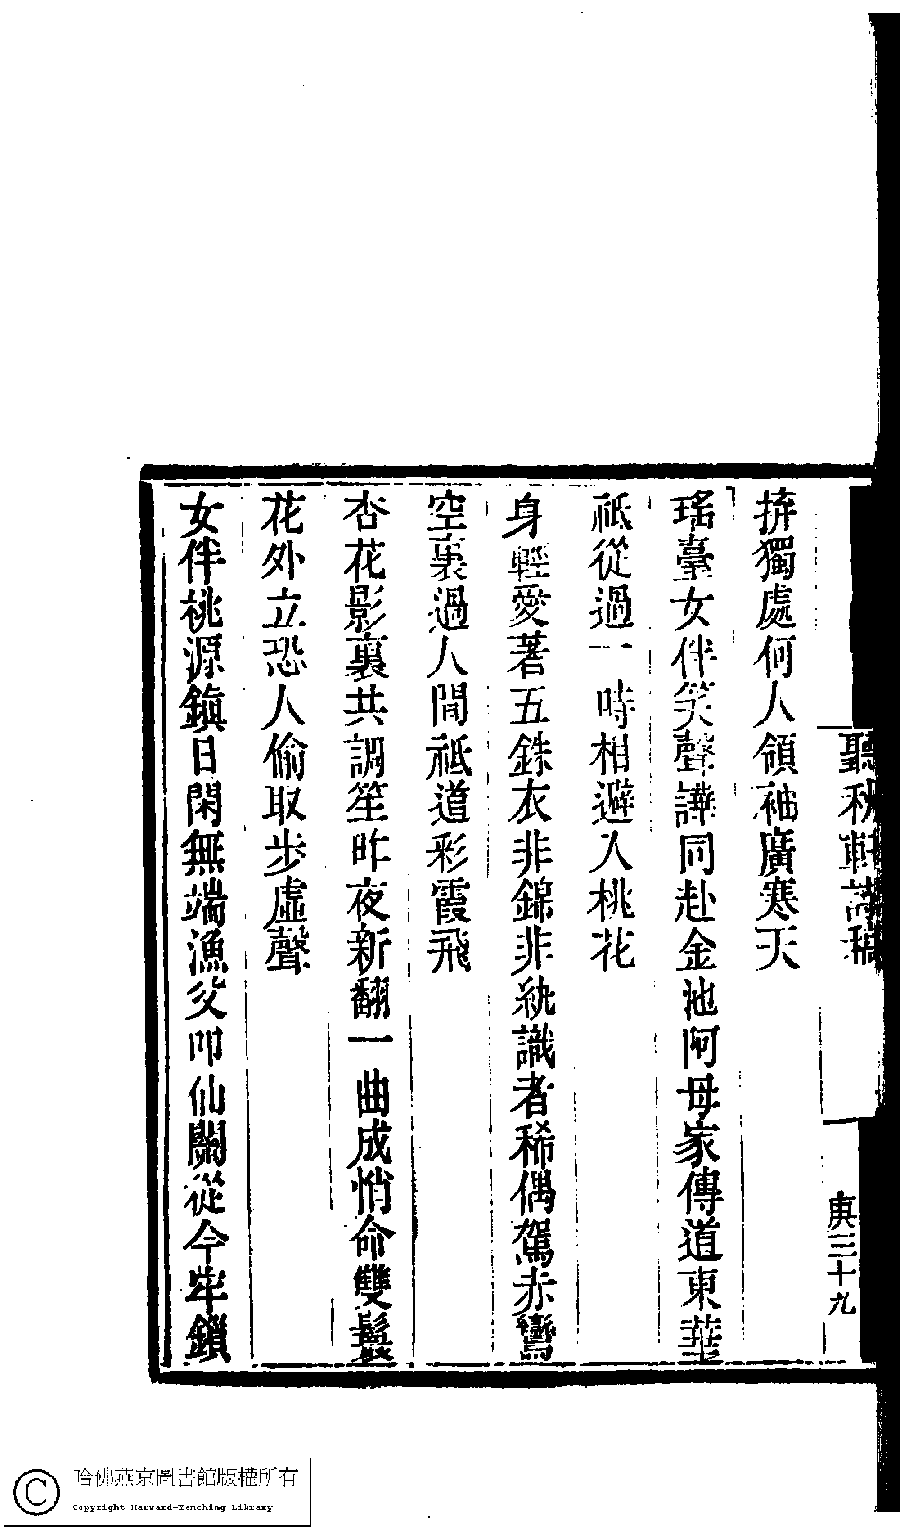 聽秋軒詩稿
庚三十九
拚獨處何人領袖廣寒天
瑤臺女伴笑聲譁同赴金池阿母家傳道東華
祗從過一時相避入桃花
身輕愛著五銖衣非錦非紈識者稀偶駕赤鸞
空裏過人間祗道彩霞飛
杏花影裏共調笙昨夜新翻一曲成悄命雙鬟
花外立恐人偷取步虛聲
女伴桃源鎮日閑無端漁父叩仙關從今牢鎖
哈佛燕京圖書館版權所有
Copyright Harvard-Yenching Library